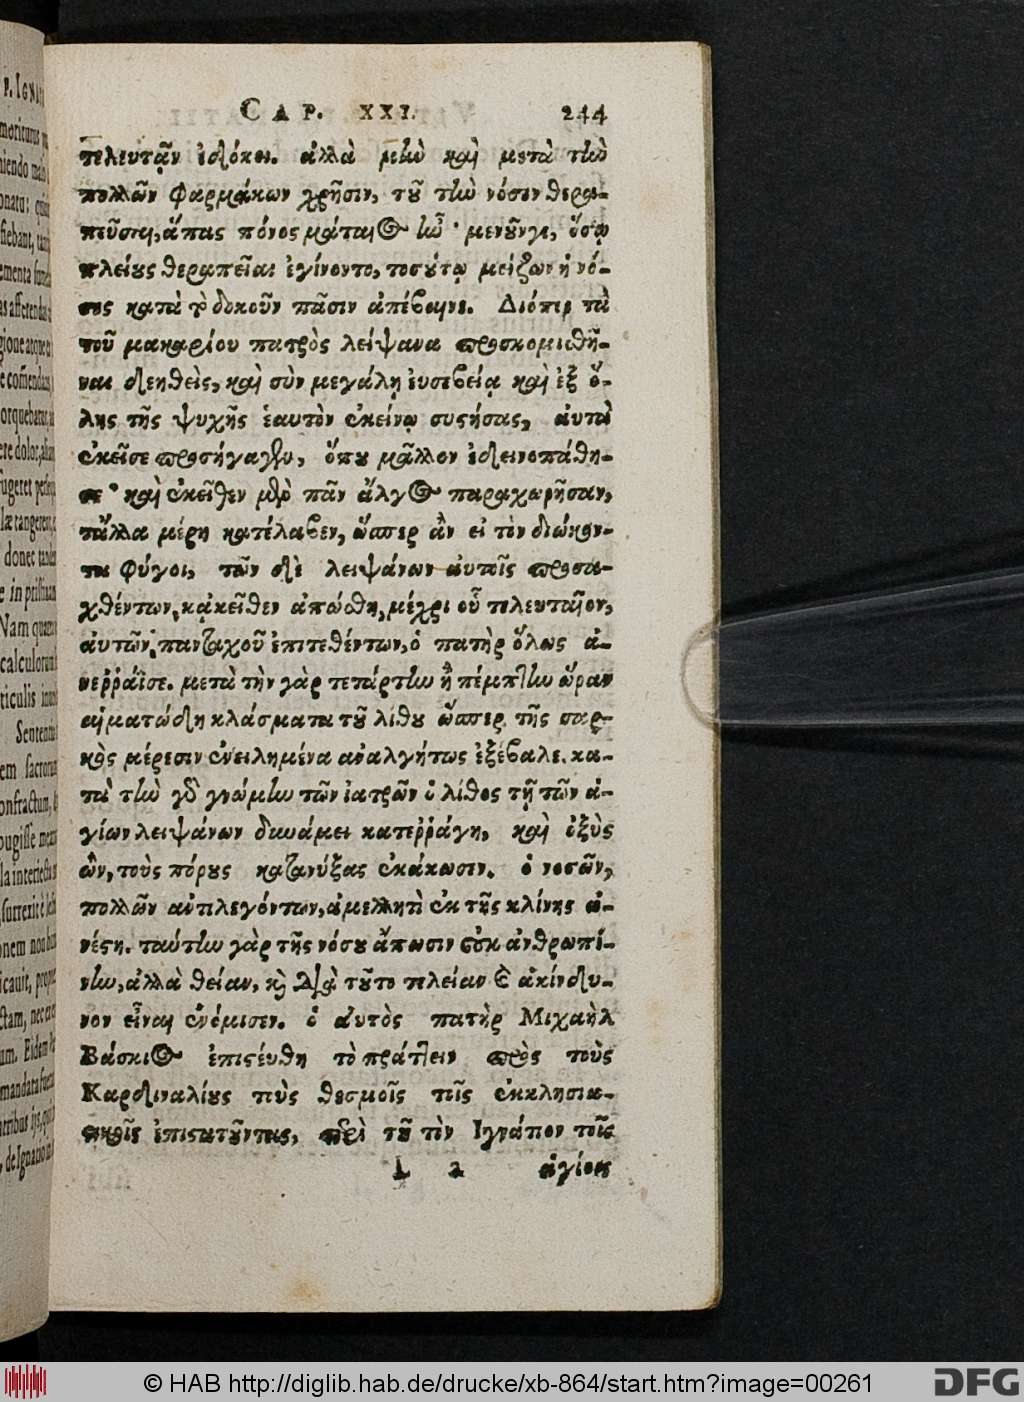 CAP. XXI. 244
τελευτᾷν ἐδόκει. ἀλλὰ μὴν καὶ μετὰ τὴν
πολλῶν φαρμάκων χρῆσιν, τοῦ τὴν νόσον θερα-
πεῦσαι, ἅπας πόνος μάταιος ἦν· μενοῦνγε, ὅσῳ
πλείους θεραπεῖαι ἐγίνοντο, τοσούτῳ μείζων ἡ νό-
σος κατὰ τὸ δοκοῦν πᾶσιν ἀπέβαινε. Διόπερ τὰ
τοῦ μακαρίου πατρὸς λείψανα προσκομισθῆ-
ναι δεηθεὶς, καὶ σὺν μεγάλῃ εὐσεβείᾳ καὶ ἐξ ὅ-
λης τῆς ψυχῆς ἑαυτὸν ἐκείνῳ συστήσας, αὐτὰ
ἐκεῖσε προσήγαγεν, ὅπου μᾶλλον ἐδεινοπάθη-
σε· καὶ ἐκεῖθεν μὲν πᾶν ἄλγος παραχωρῆσαν,
τἄλλα μέρη κατέλαβεν, ὥσπερ ἂν εἰ τὸν διώκον-
τα φύγοι, τῶν δὲ λειψάνων αὐτοῖς προσα-
χθέντων, κἀκεῖθεν ἀπώσθη, μέχρι οὗ τελευταῖον,
αὐτῶν πανταχοῦ ἐπιτεθέντων, ὁ πατὴρ ὅλως ἀ-
νεῤῥάϊσε. μετὰ τὴν γὰρ τετάρτην ἢ πέμπτην ὥραν
αἱματώδη κλάσματα τοῦ λίθου ὥσπερ τῆς σαρ-
κὸς μέρεσιν ἐνειλημένα ἀναλγήτως ἐξέβαλε. κα-
τὰ τὴν γὰρ γνώμην τῶν ἰατρῶν ὁ λίθος τῇ τῶν ἁ-
γίων λειψάνων δυνάμει κατεῤῥάγη, καὶ ὀξὺς
ὢν, τοὺς πόρους κατανύξας ἐκάκωσεν. ὁ νοσῶν,
πολλῶν ἀντιλεγόντων, ἀμελλητὶ ἐκ τῆς κλίνης ἀ-
νέστη. ταύτην γὰρ τῆς νόσου ἄπωσιν οὐκ ἀνθρωπί-
νην, ἀλλὰ θείαν, καὶ διὰ τοῦτο τελείαν καὶ ἀκίνδυ-
νον εἶναι ἐνόμισεν. ὁ αὐτὸς πατὴρ Μιχαὴλ
Βάσκιος ἐπιστεύθη τὸ πράττειν πρὸς τοὺς
Καρδιναλίους τοὺς θεσμοῖς τοῖς ἐκκλησια-
στικοῖς ἐπιστατοῦντας, περὶ τοῦ τὸν Ιγνάτιον τοῖς
L 2 ἁγίοις
© HAB http://diglib.hab.de/drucke/xb-864/start.htm?image=00261
DFG